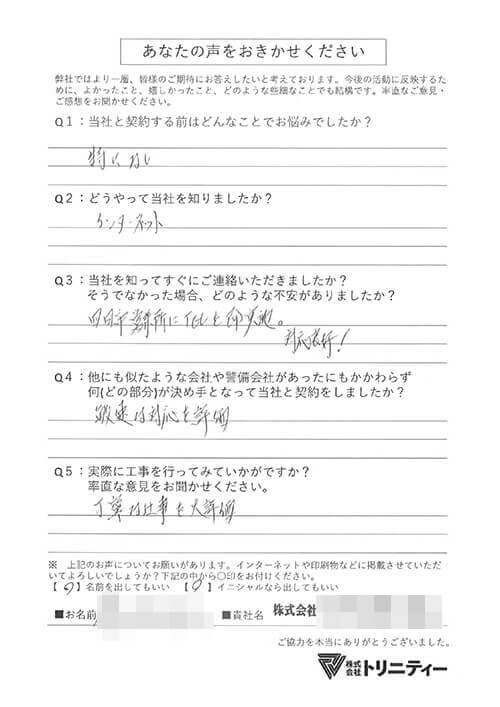 あなたの声をおきかせください
弊社ではより一層、皆様のご期待にお答えしたいと考えております。今後の活動に反映するた
めに、よかったこと、嬉しかったこと、どのような些細なことでも結構です。率直なご意見・
ご感想をお聞かせください。
Q1：当社と契約する前はどんなことでお悩みでしたか？
特になし
Q2：どうやって当社を知りましたか？
インターネット
Q3：当社を知ってすぐにご連絡いただきましたか？
そうでなかった場合、どのような不安がありましたか？
四日市営業所にTELを即実施。
対応良好！
Q4：他にも似たような会社や警備会社があったにもかかわらず
何(どの部分)が決め手となって当社と契約をしましたか？
敏速な対応を評価
Q5：実際に工事を行ってみていかがですか？
率直な意見をお聞かせください。
丁寧な仕事を大評価
※　上記のお声についてお願いがあります。インターネットや印刷物などに掲載させていただ
いてよろしいでしょうか？下記の中から〇印をお付けください。
【 】名前を出してもいい 【 】イニシャルなら出してもいい
■お名前 ■貴社名 株式会社
ご協力を本当にありがとうございました。
株式会社トリニティー